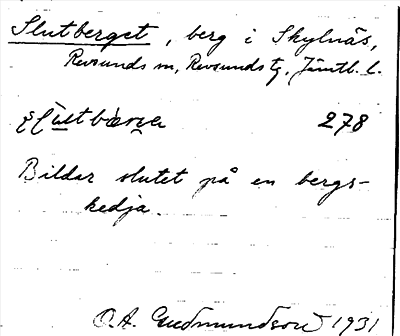 Slutberget, berg i Skylnäs,
Revsunds sn, Revsunds tg, Jämtl. l.
278
Bildar slutet på en bergs-
kedja.
O.A. Gudmundson 1931